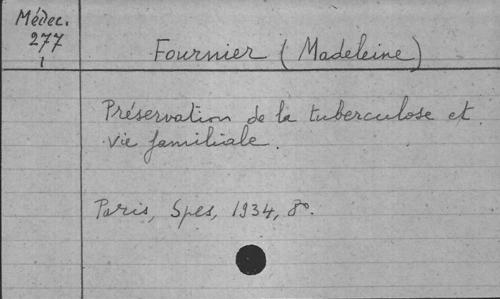 Médec.
277
1
Fournier (Madeleine)
Préservation de la tuberculose et
vie familiale.
Paris, Spes, 1934, 8º.